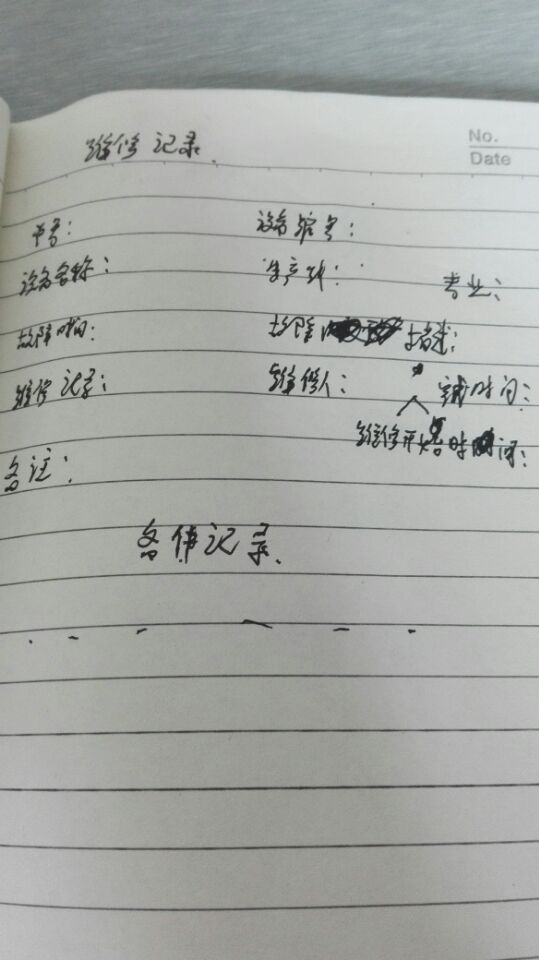 维修记录
No.
Date
单号： 设备编号：
设备名称： 生产线： 专业：
故障时间： 故障描述：
维修记录： 维修人： 完成时间：
维修开始时间：
备注：
备件记录